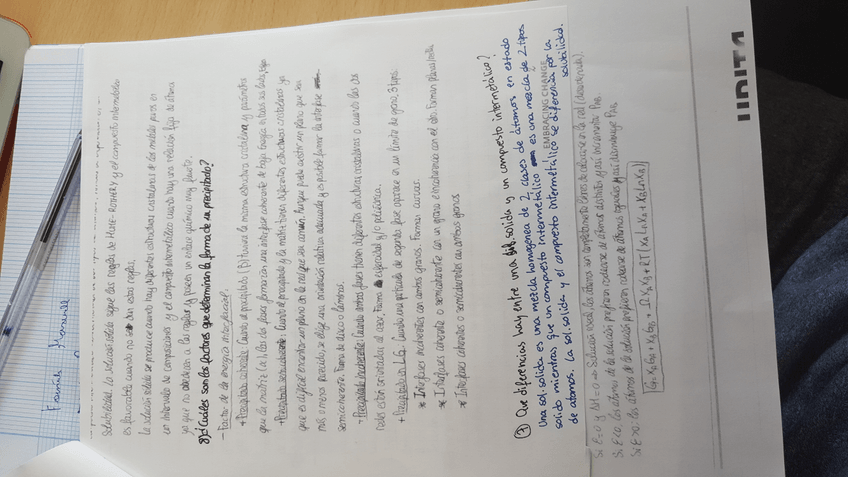 solubilidad, la solución sólida sigue las reglas de HUME-ROTHERY y el compuesto intermetálico
es favorecido cuando no se dan estas reglas.
la solución sólida se produce cuando hay diferentes estructuras cristalinas de los metales puros en
un intervalo de composiciones y el compuesto intermetálico cuando hay una relación fija de átomos
ya que no obedecen a las reglas y poseen un enlace químico muy fuerte.
8) ¿Cuáles son los factores que determinan la forma de un precipitado?
- Factor de la energía interfacial:
+ Precipitado coherente: Cuando el precipitado (β) tiene la misma estructura cristalina y parámetro
que la matriz (α), las dos fases forman una interfase coherente de baja energía en todos sus lados,
+ Precipitado semicoherente: Cuando el precipitado y la matriz tienen diferentes estructuras cristalinas ya
que es difícil encontrar un plano en la red que sea común. Aunque puede existir un plano que sea
más o menos parecido, se elige una orientación relativa adecuada y es posible formar la interfase
semicoherente. Forma de disco o láminas.
- Precipitado incoherente: Cuando ambas fases tienen diferentes estructuras cristalinas o cuando las dos
redes están orientadas al azar. Forma esferoidal y/o poliédrica.
+ Precipitado en L.G.: Cuando una partícula de segunda fase aparece en un límite de grano, 3 tipos:
* Interfases incoherentes con ambos granos. Forman curvas.
* Interfases coherente o semicoherente con un grano e incoherente con el otro. Forman
* Interfases coherentes o semicoherentes con ambos granos
7) Que diferencias hay entre una sol. solida y un compuesto intermetálico?
Una sol. solida es una mezcla homogénea de 2 clases de átomos en estado
solido mientras que un compuesto intermetálico es una mezcla de 2 tipos
de atomos. La sol. solida y el compuesto intermetálico se diferencia por la
solubilidad.
Si ε=0 y ΔH=0 ⇒ Solución ideal, los átomos son completamente libres de colocarse en la red (desordenada).
Si ε<0, los átomos de la solución prefieren rodearse de átomos distintos y así incrementar PAB.
Si ε>0, los átomos de la solución prefieren rodearse de átomos iguales y así disminuye PAB.
G = XAGA + XBGB + ΩXAXB + RT(XA Ln XA + XB Ln XB)
EMBRACING CHANGE